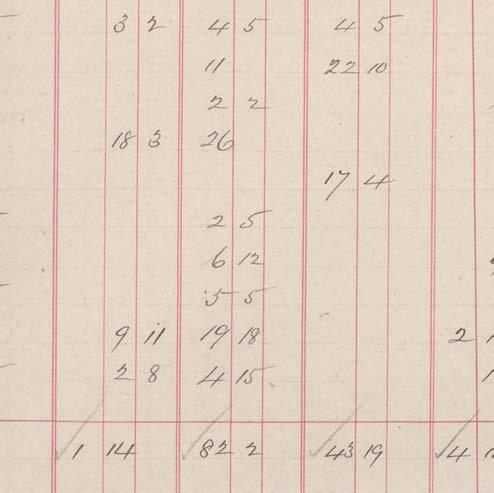 3 2 4 5 4 5
11 22 10
2 2
18 3 26
17 4
2 5
6 12
5 5
9 11 19 18 2
2 8 4 15
1 14 82 2 43 19 4